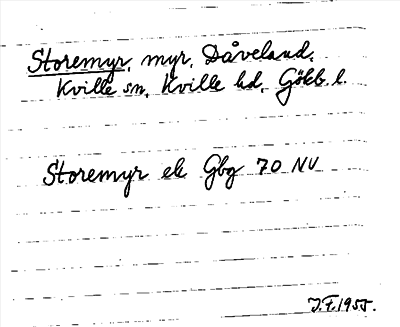 Storemyr, myr, Dåveland,
Kville sn, Kville hd, Götb. l.
Storemyr ek Gbg 70 NV
J.F. 1955.